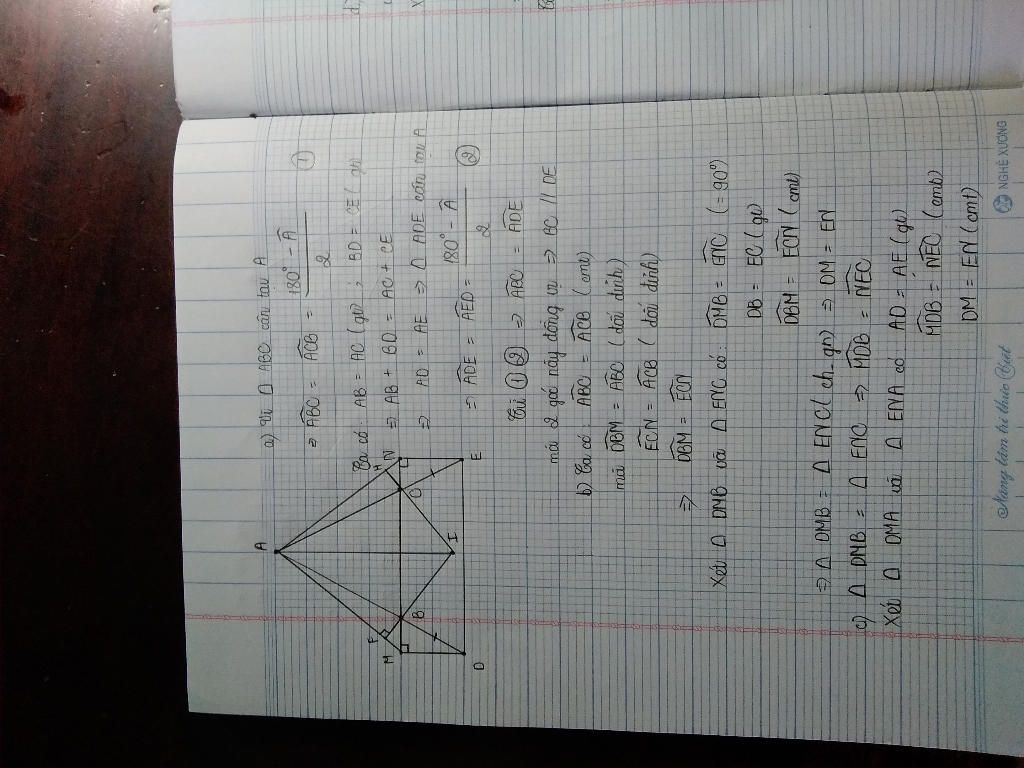 a) Vì Δ ABC cân tại A
⇒ ABC = ACB = 180° - A / 2 ①
Ta có: AB = AC (gt) ; BD = CE (gt
⇒ AB + BD = AC + CE
⇒ AD = AE ⇒ Δ ADE cân tại A
⇒ ADE = AED = 180° - A / 2 ②
Từ ① ② ⇒ ABC = ADE
mà 2 góc này đồng vị ⇒ BC // DE
b) Ta có: ABC = ACB (cmt)
mà DBM = ABC (đối đỉnh)
ECN = ACB (đối đỉnh)
⇒ DBM = ECN
Xét Δ DMB và Δ ENC có: DMB = ENC (= 90°)
DB = EC (gt)
DBM = ECN (cmt)
⇒ Δ DMB = Δ ENC (ch_gn) ⇒ DM = EN
c) Δ DMB = Δ ENC ⇒ MDB = NEC
Xét Δ DMA và Δ ENA có AD = AE (gt)
MDB = NEC (cmt)
DM = EN (cmt)
A
F
M
B
D
I
H
N
C
E
Nâng tầm tri thức Việt
NGHỆ XƯƠNG